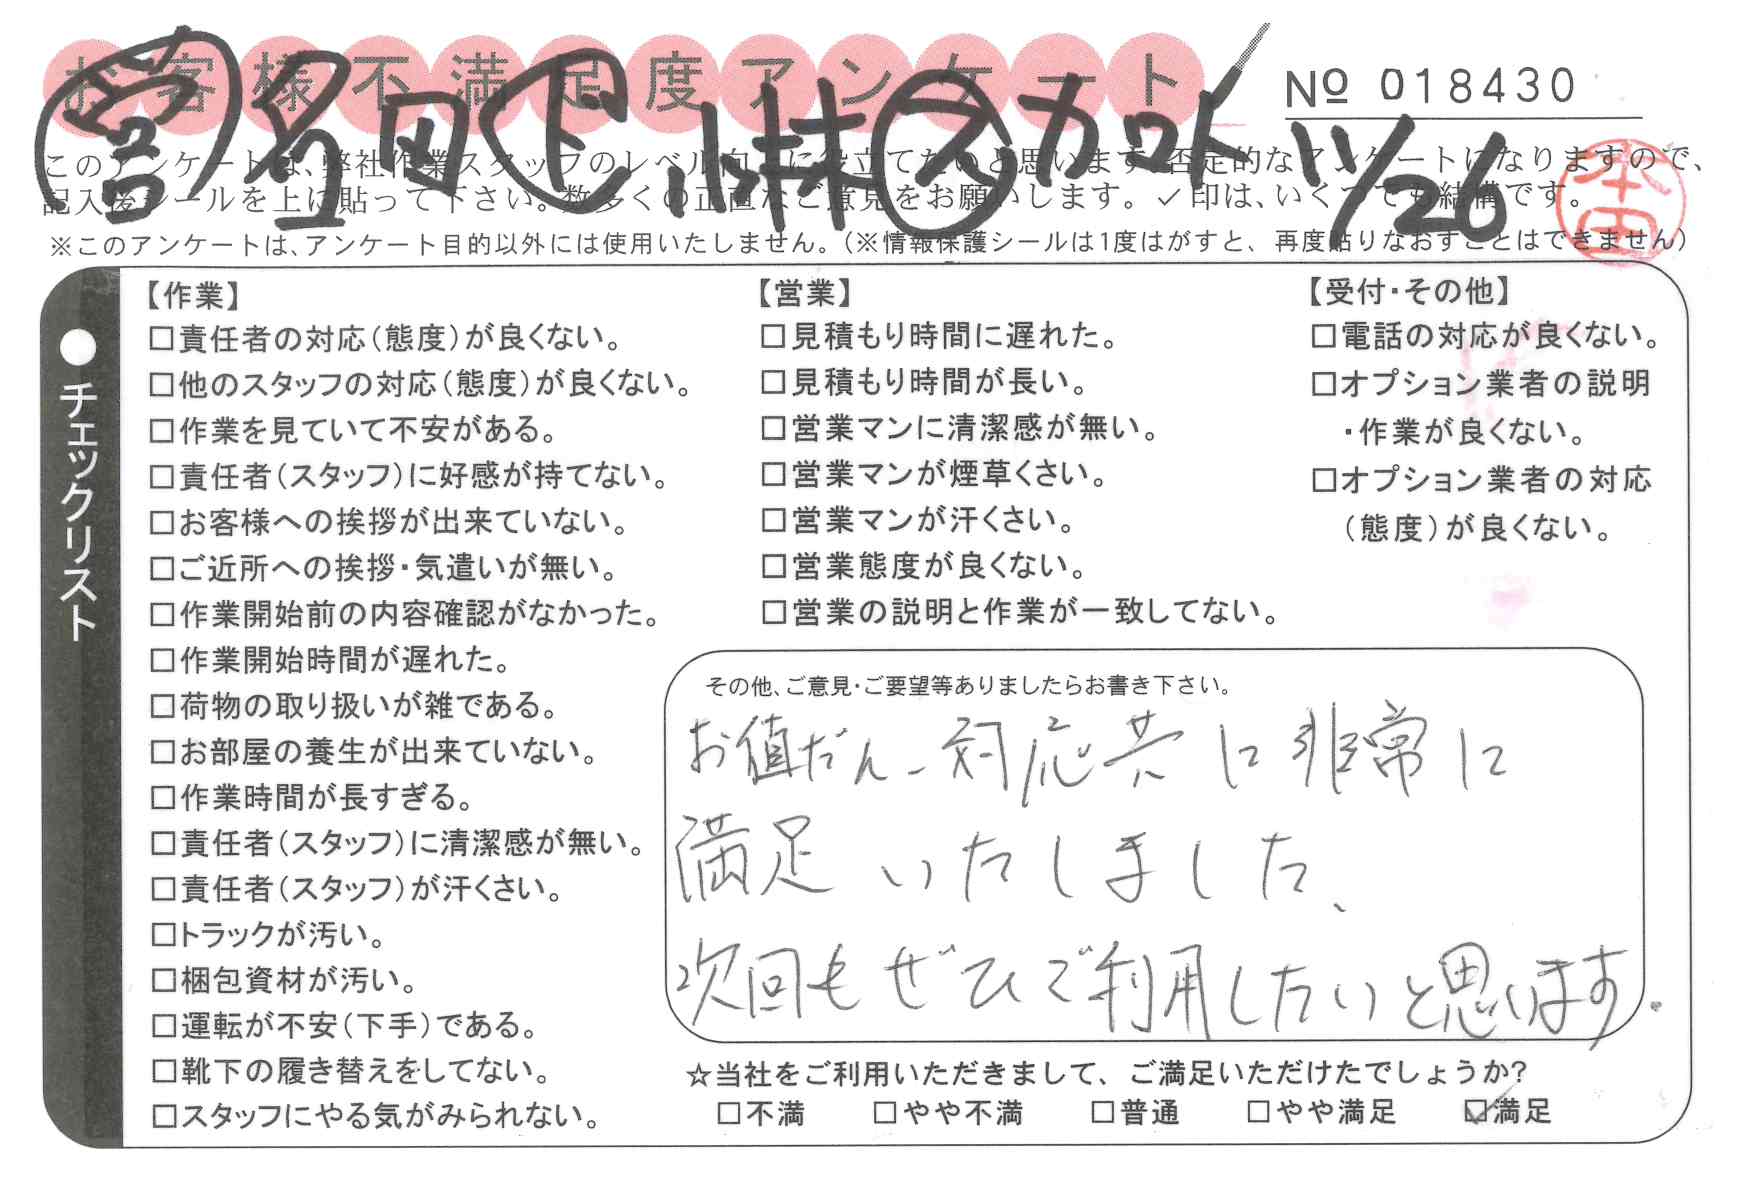 お客様不満足度アンケート
営 名田 ド 小林 ス カロト 11/26
Nº 018430
このアンケートは、弊社作業スタッフのレベル向上に役立てたいと思います。否定的なアンケートになりますので、
記入後シールを上に貼って下さい。数多くの正直なご意見をお願いします。✓印は、いくつでも結構です。
※このアンケートは、アンケート目的以外には使用いたしません。（※情報保護シールは1度はがすと、再度貼りなおすことはできません）
本田
●チェックリスト
【作業】
□責任者の対応（態度）が良くない。
□他のスタッフの対応（態度）が良くない。
□作業を見ていて不安がある。
□責任者（スタッフ）に好感が持てない。
□お客様への挨拶が出来ていない。
□ご近所への挨拶・気遣いが無い。
□作業開始前の内容確認がなかった。
□作業開始時間が遅れた。
□荷物の取り扱いが雑である。
□お部屋の養生が出来ていない。
□作業時間が長すぎる。
□責任者（スタッフ）に清潔感が無い。
□責任者（スタッフ）が汗くさい。
□トラックが汚い。
□梱包資材が汚い。
□運転が不安（下手）である。
□靴下の履き替えをしてない。
□スタッフにやる気がみられない。
【営業】
□見積もり時間に遅れた。
□見積もり時間が長い。
□営業マンに清潔感が無い。
□営業マンが煙草くさい。
□営業マンが汗くさい。
□営業態度が良くない。
□営業の説明と作業が一致してない。
【受付・その他】
□電話の対応が良くない。
□オプション業者の説明
・作業が良くない。
□オプション業者の対応
（態度）が良くない。
その他、ご意見・ご要望等ありましたらお書き下さい。
お値だん、対応共に非常に
満足いたしました、
次回もぜひご利用したいと思います。
☆当社をご利用いただきまして、ご満足いただけたでしょうか?
□不満 □やや不満 □普通 □やや満足 ☑満足